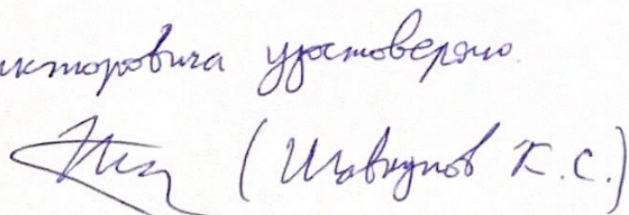 икторовича удостоверяю.
(Шовкунов К.С.)